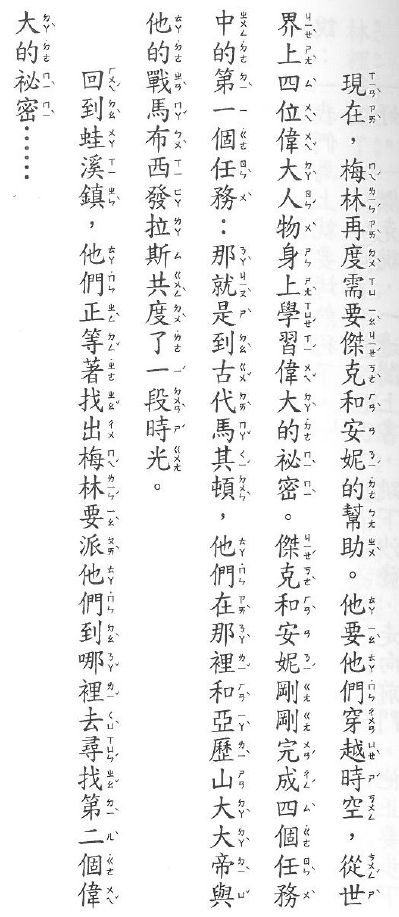 現在，梅林再度需要傑克和安妮的幫助。他要他們穿越時空，從世
界上四位偉大人物身上學習偉大的祕密。傑克和安妮剛剛完成四個任務
中的第一個任務：那就是到古代馬其頓，他們在那裡和亞歷山大大帝與
他的戰馬布西發拉斯共度了一段時光。
回到蛙溪鎮，他們正等著找出梅林要派他們到哪裡去尋找第二個偉
大的祕密……